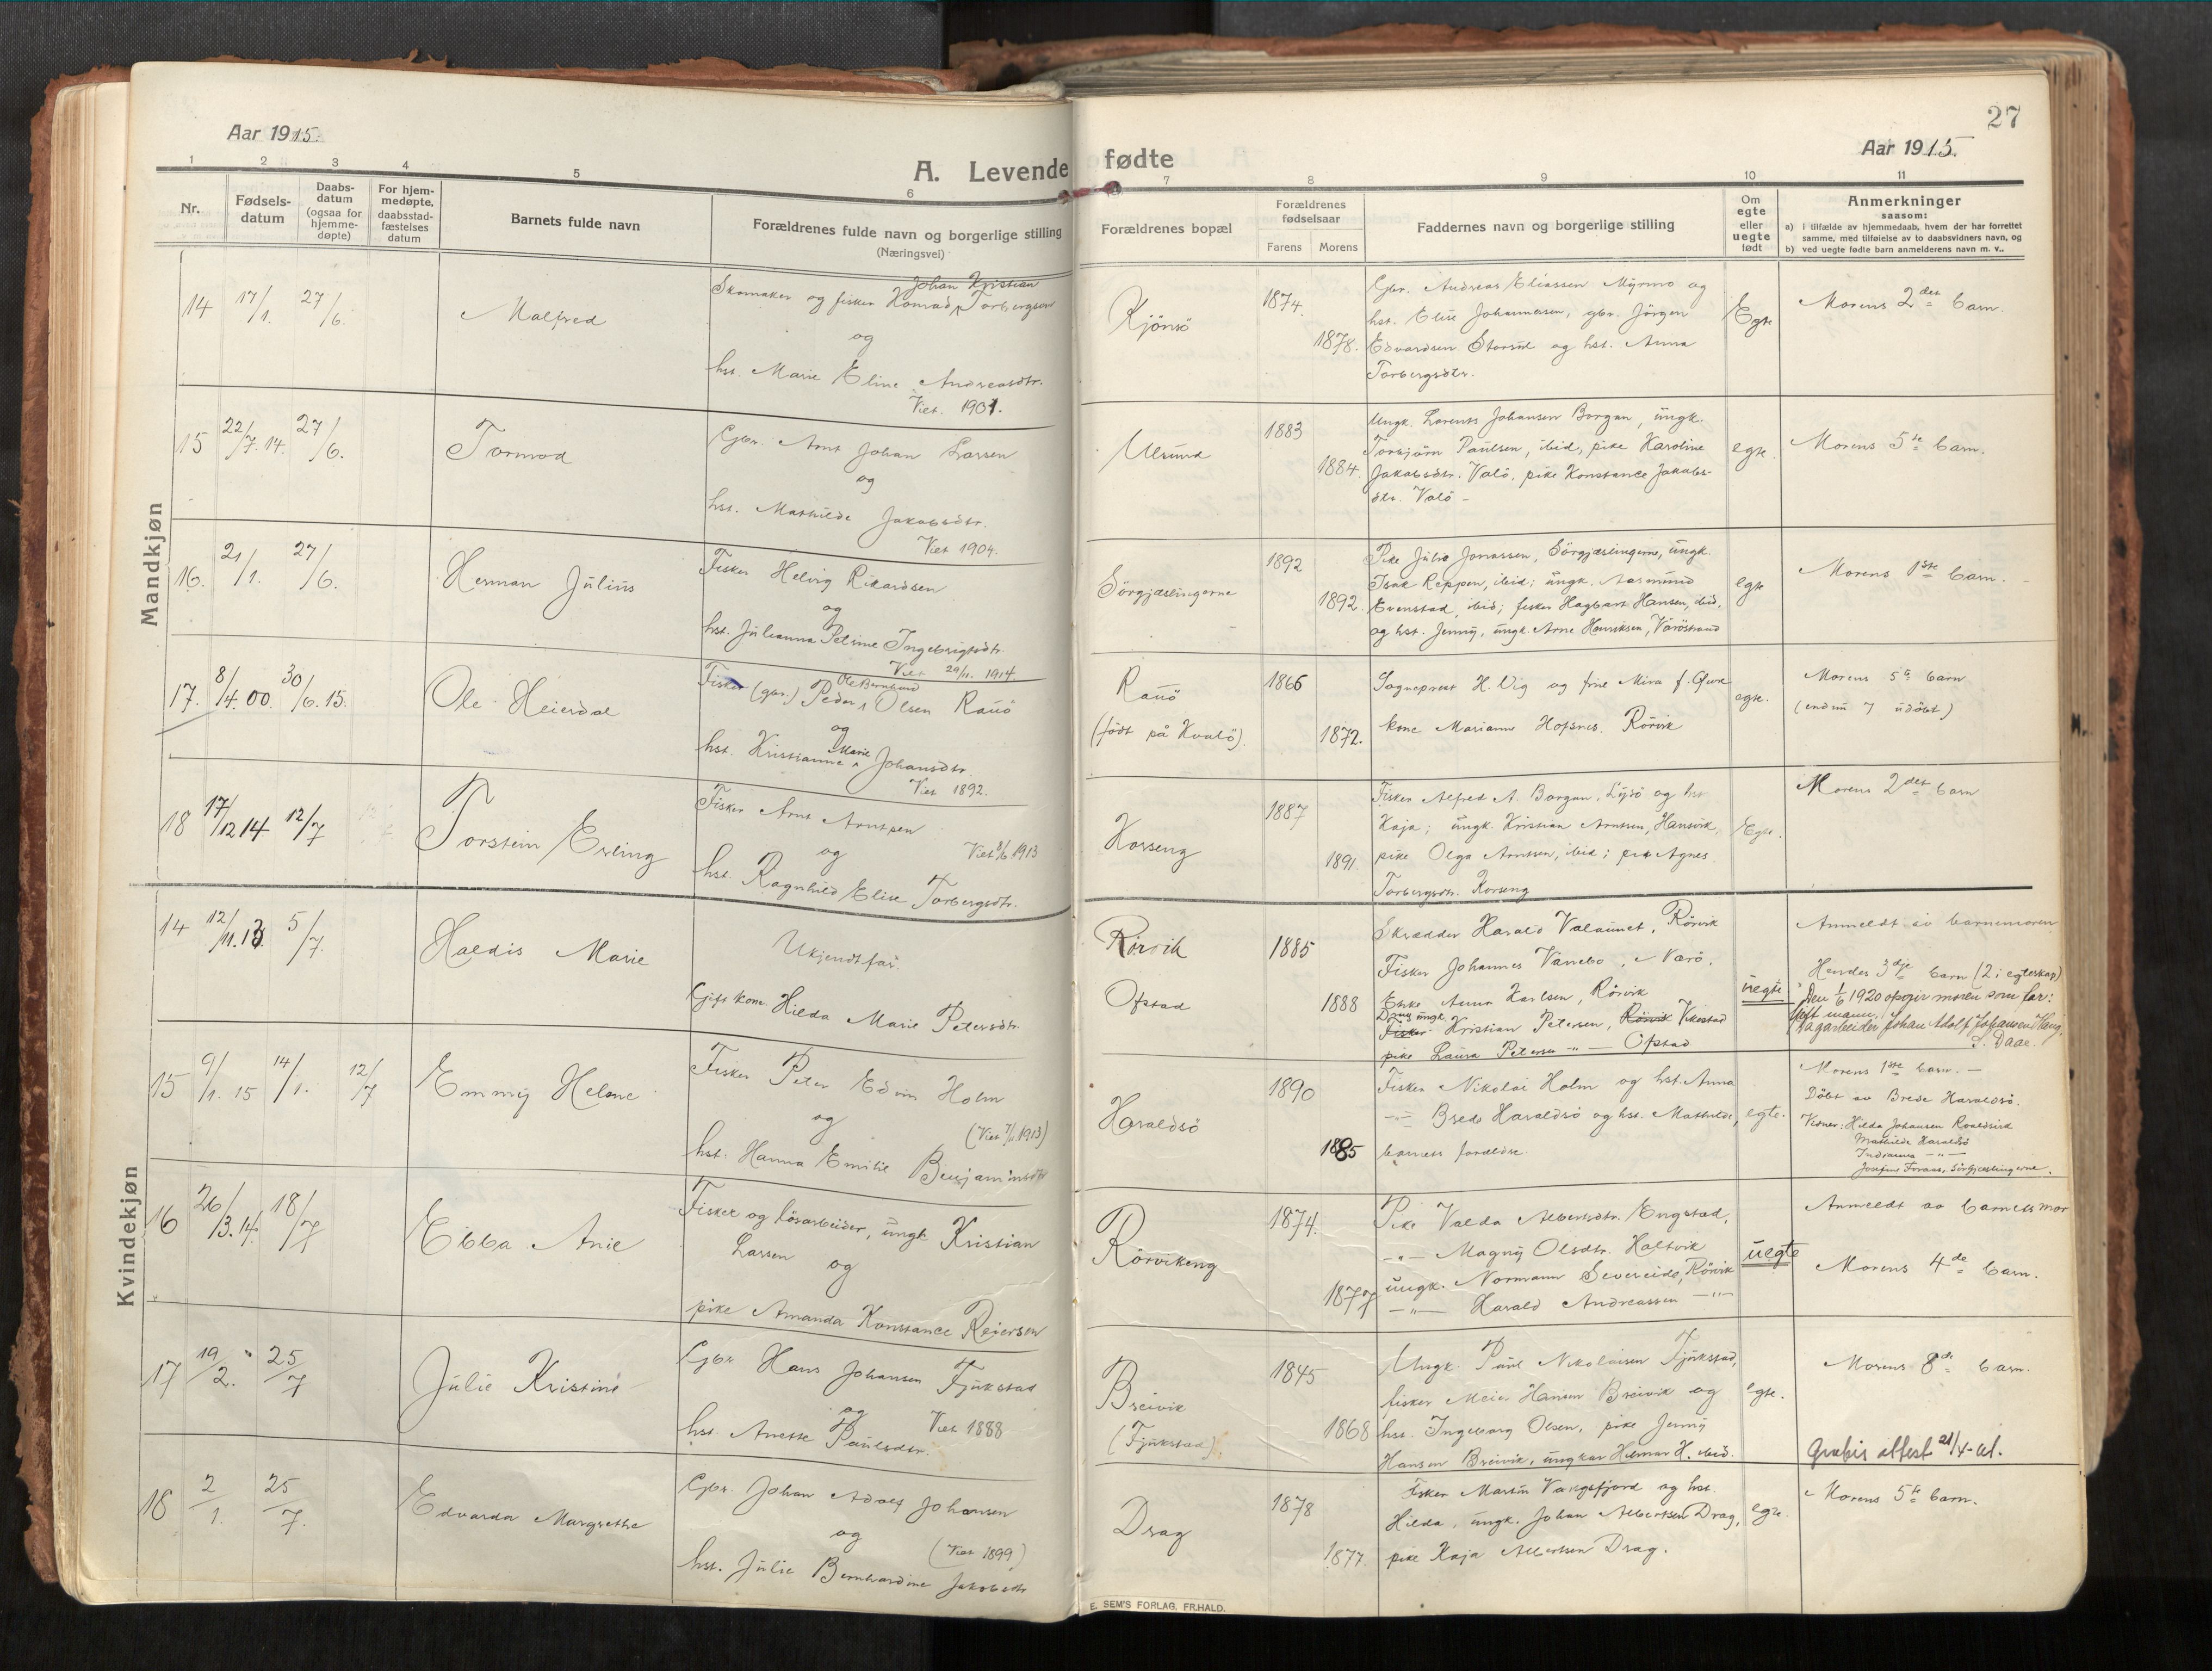 Aar 1915.
A. Levende
1 2 3 4 5 6
Nr.
Fødsels-
datum
Daabs-
datum
(ogsaa for
hjemme-
døpte)
For hjem-
medøpte,
daabsstad-
fæstelses
datum
Barnets fulde navn
Forældrenes fulde navn og borgerlige stilling
(Næringsvei)
Mandkjøn
14 17/1. 27/6. Malfred
Johan Kristian
Skomaker og fisker Konrad Torbergsen
og
hst. Marie Eline Andreasdtr.
Viet. 1901.
15 22/7.14. 27/6. Tormod
Gbr. Arnt Johan Larsen
og
hst. Mathilde Jakobsdtr.
Viet 1904.
16. 21/1. 27/6. Herman Julius
Fisker Helvig Rikardsen
og
hst. Julianna Petrine Ingebrigtsdtr.
Viet 29/11. 1914
17. 8/4.00. 30/6.15. Ole Heierdal
Ole Bernhard
Fisker (gbr.) Peder Olsen Rauö
og
Marie
hst. Kristianne Johansdtr.
Viet 1892.
18 17/12 14 12/7 Torstein Erling
Fisker Arnt Arntsen
og
Viet 8/6 1913
hst. Ragnhild Elise Torbergsdtr.
Kvindekjøn
14 12/11.13. 5/7. Haldis Marie
Ukjendt far.
Gift kone Hilda Marie Petersdtr.
15 9/1. 15 14/1. 12/7 Emmy Helene
Fisker Peter Edvin Holm
og
(Viet 7/11 1913)
hst. Hanna Emilie Benjaminsdtr
16 26/3.14. 18/7 Ebba Anie
Fisker og lösarbeider, ungk. Kristian
Larsen
og
pike Amanda Konstance Reiersen
17 19/2. 25/7 Julie Kristine
Gbr Hans Johansen Fjukstad
og
Viet 1888
hst. Anette Paulsdtr.
18 2/1. 25/7. Edvarda Margrethe
Gbr. Johan Adolf Johansen
og
(Viet 1899)
hst. Julie Bernhardine Jakobsdtr
27
Aar 1915.
fødte
7 8 9 10 11
Forældrenes bopæl
Forældrenes
fødselsaar
Farens Morens
Faddernes navn og borgerlige stilling
Om
egte
eller
uegte
født
Anmerkninger
saasom:
a) i tilfælde av hjemmedaab, hvem der har forrettet
samme, med tilføielse av to daabsvidners navn, og
b) ved uegte fødte barn anmelderens navn m. v..
Kjönsö 1874. 1878.
Gbr. Andreas Eliassen Myrmo og
hst. Elise Johannesen, gbr. Jörgen
Edvardsen Storsul og hst. Anna
Torbergsdtr.
Egte
Morens 2det barn.
Ulsund 1883 1884.
Ungk. Lorents Johansen Borgan, ungk.
Torbjörn Paulsen, ibid, pike Karoline
Jakobsdtr. Valö, pike Konstance Jakobs-
dtr. Valö -
egte.
Morens 5te barn.
Sörgjæslingerne 1892 1892.
Pike Julie Jonassen, Sörgjæslingerne, ungk.
Isak Reppen, ibid; ungk. Aasmund
Evenstad, ibid; fisker Hagbart Hansen, ibid,
og hst. Jenny, ungk. Arne Henriksen, Væröstrand
egte
Morens 1ste barn.
Rauö
(födt på Kvalö).
1866 1872.
Sogneprest H. Vig og frue Mira f. Qvale
kone Marianne Hofsnes. Rörvik
egte.
Morens 5te barn
(endnu 7 udöbt)
Korseng 1887 1891.
Fisker Alfred A. Borgan, Lysö og hst
Kaja; ungk. Kristian Arntsen, Hansvik,
pike Olga Arntsen, ibid; pike Agnes
Torbergsdtr. Korseng
Egte.
Morens 2det barn
Rörvik
Ofstad
1885 1888
Skrædder Harald Valaunet, Rörvik
Fisker Johannes Vanebo, N. Værö,
Enke Anna Karlsen, Rörvik
Dreng ungk.
Fisker Kristian Petersen, Rörvik Vikestad
pike Laura Petersen -"- Ofstad
uegte
Anmeldt av barnemoren
Hendes 3dje barn (2 i egteskap)
Den 1/6 1920 opgir moren som far:
gift mann,
Dagarbeider Johan Adolf Johansen Haug.
S. Daae.
Haraldsö 1890 1885
Fisker Nikolai Holm og hst. Anna
-"- Brede Haraldsö og hst. Mathilde,
barnets forældre.
egte.
Morens 1ste barn. -
Döbt av Brede Haraldsö.
Vidner: Hilda Johansen
Mathilde Haraldsö
Indianna -"-
Josefine Foraas, Sörgjæslingerne.
Rörvikeng 1874. 1877
Pike Valda Albertsdtr. Engstad,
-"- Magny Olsdtr. Haltvik
ungk. Normann Severeide, Rörvik
-"- Harald Andreassen -"-
uegte
Anmeldt av barnets mor
Morens 4de barn.
Breivik
(Fjukstad)
1845 1868
Ungk. Paul Nikolaisen Fjukstad,
fisker Meier Hansen Breivik og
hst. Ingeborg Olsen, pike Jenny
Hansen Breivik, ungkar Hilmar H. ibid.
egte.
Morens 8de barn.
Gratis attest 21/4-41.
Drag 1878 1877.
Fisker Martin Vangsfjord og hst.
Hilda, ungk. Johan Albertsen Drag,
pike Kaja Albertsen Drag.
egte.
Morens 5te barn.
E. SEM'S FORLAG, FR.HALD.